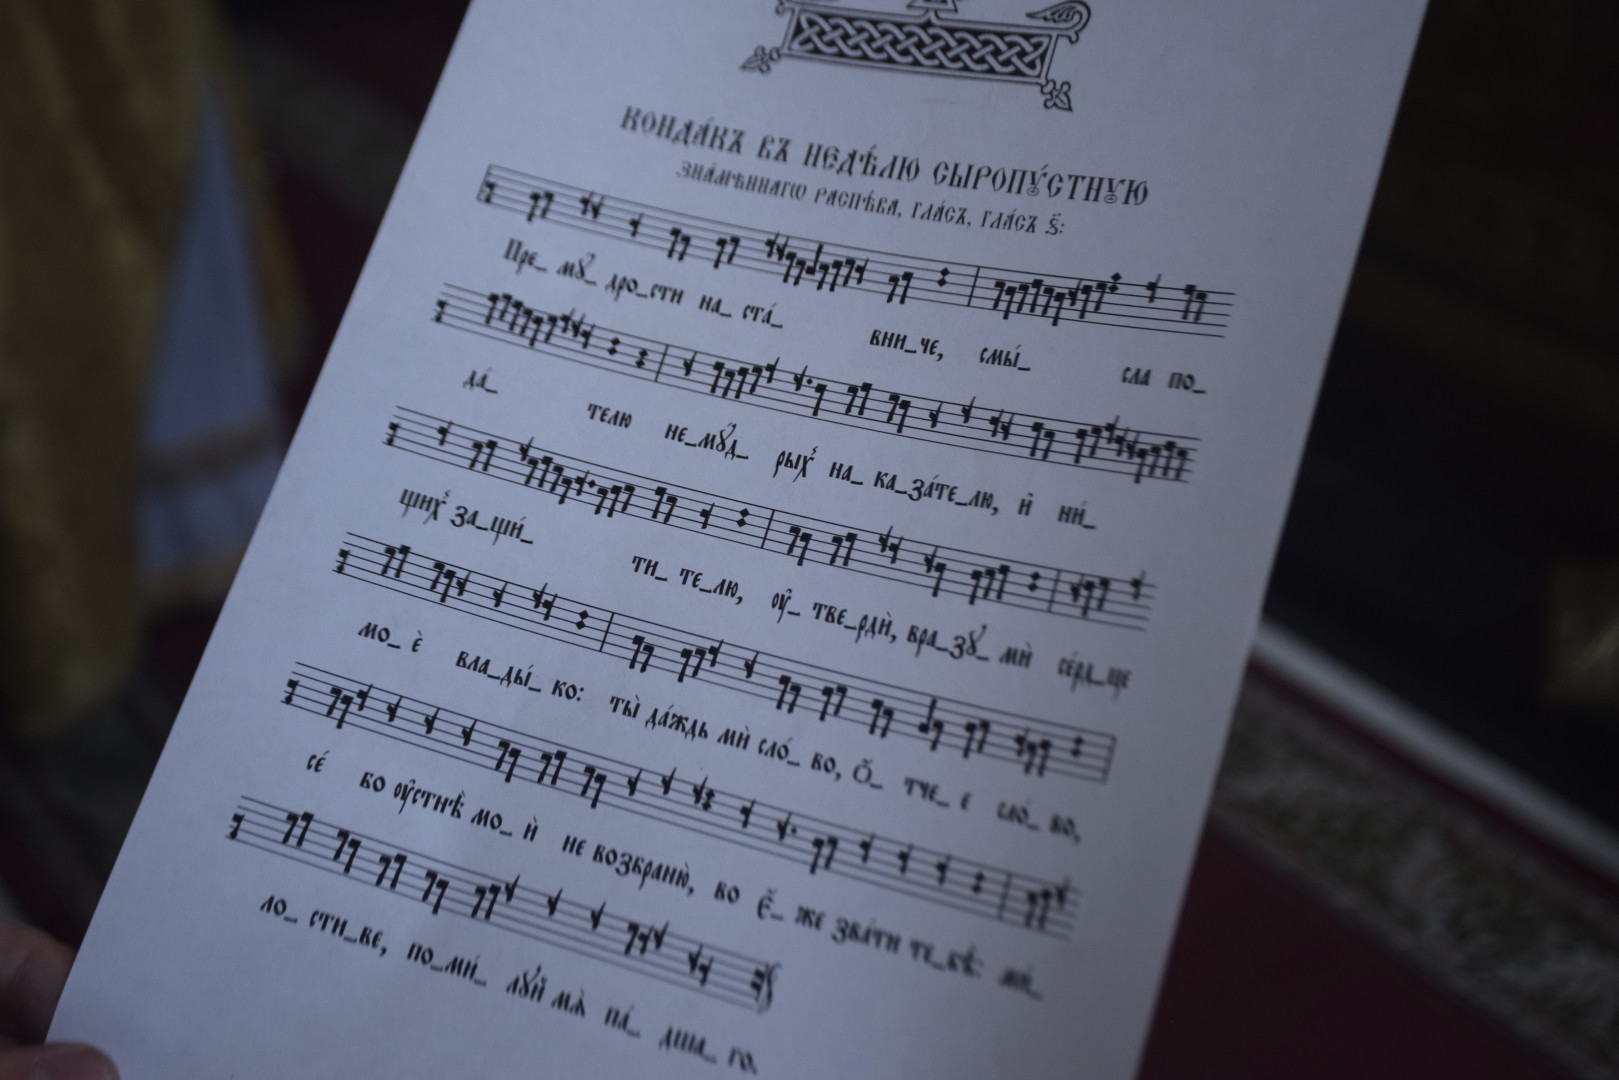 Конда́къ въ недѣ́лю сыропꙋ́стнꙋю
Зна́меннагѡ распѣ́ва, гла́съ, гла́съ ѕ҃:
Пре_ мꙋ́_ дро_сти на_ ста́_ вни_че, смы́_ сла по_
да́_ телю не_мꙋ́д_ рыхъ на_ ка_за́те_лю, и҆ ни́_
щихъ за_щи́_ ти_ те_лю, ᲂу҆_ тве_рдѝ, вра_зꙋ_ мѝ се́рд_це
мо_ ѐ вла_ды́_ ко: ты̀ да́ждь мѝ сло́_ во, Ѻ҆́_ тче_ е сло́_ во,
се́ бо ᲂу҆стнѣ̀ мо_ ѝ не возбраню̀, во є҆́_ же зва́ти те_бѣ̀: ми́_
ло_ сти_ве, по_ми́_ лꙋй мѧ̀ па́_ дша_ го.